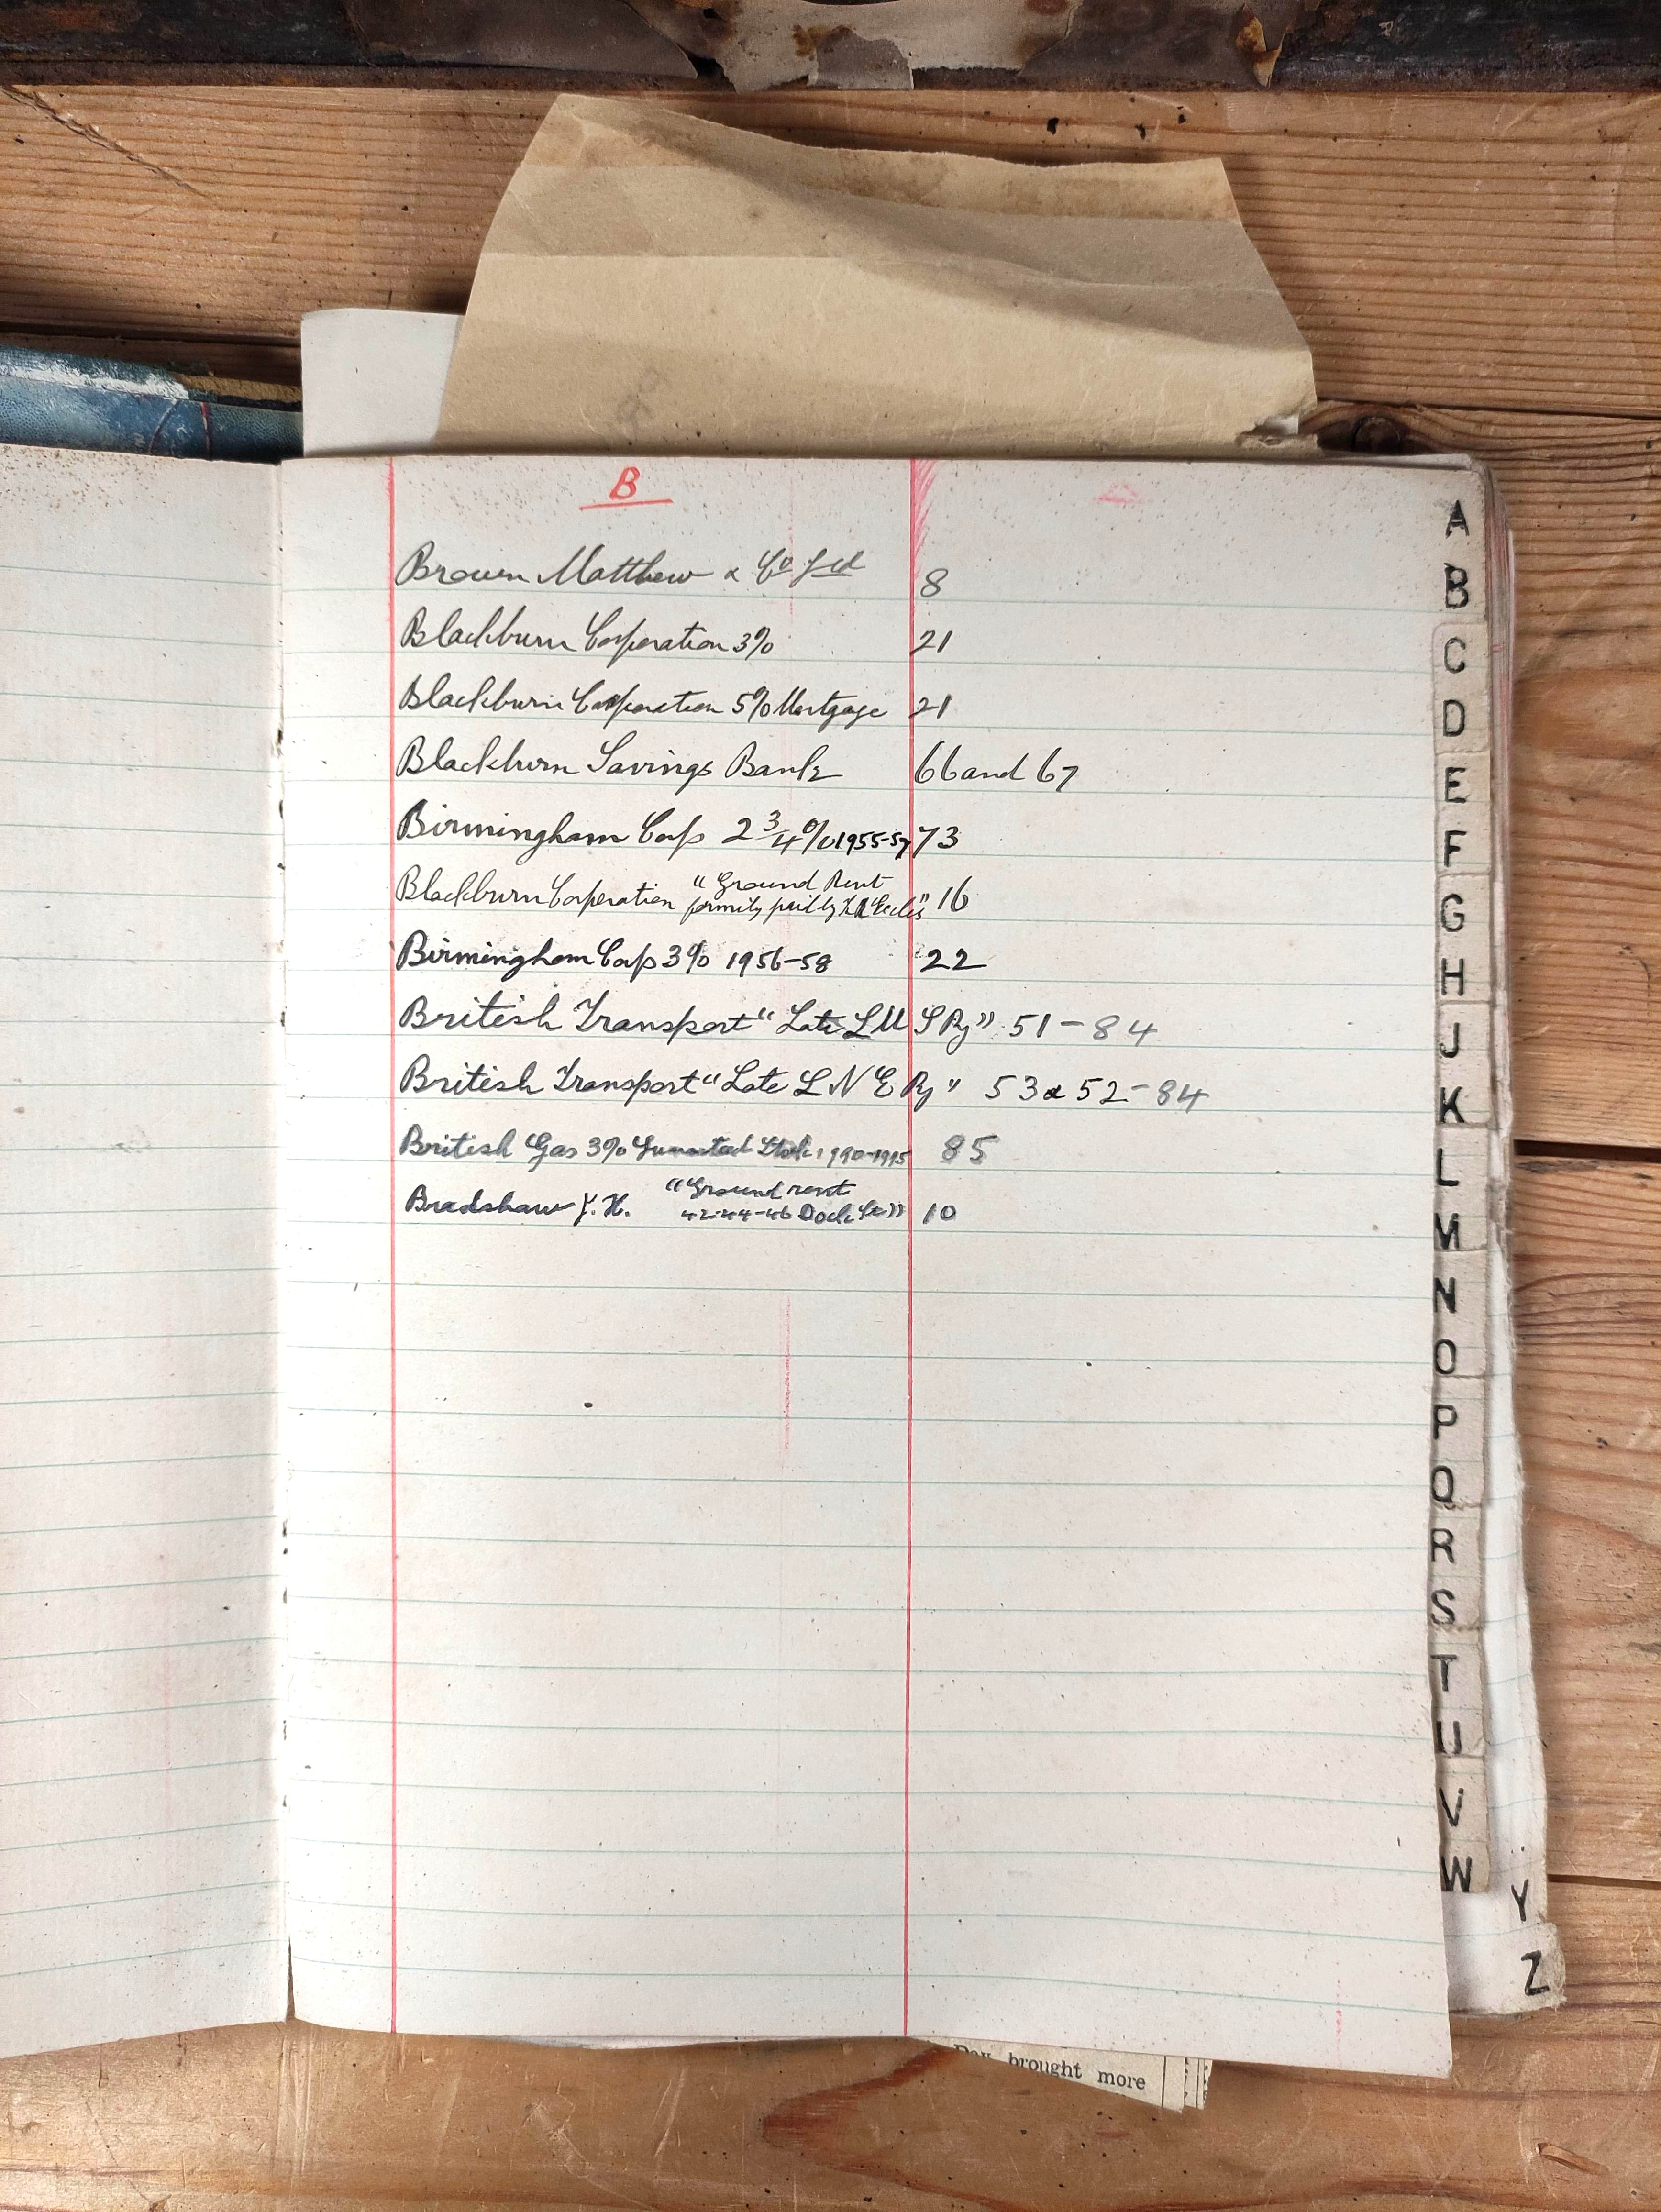 B
Brown Matthew & Co Ltd 8
Blackburn Corporation 3% 21
Blackburn Corporation 5% Mortgage 21
Blackburn Savings Bank 66 and 67
Birmingham Corp 2 3/4 % 1955-57 73
Blackburn Corporation "Ground Rent
formily paid by Eccles" 16
Birmingham Corp 3% 1956-58 22
British Transport "Late L M S Ry" 51-84
British Transport "Late L N E Ry" 53 & 52-84
British Gas 3% Stock 1990-1995 85
Bradshaw J.H. "Ground rent
42-44-46 Dock St" 10
A
B
C
D
E
F
G
H
J
K
L
M
N
O
P
Q
R
S
T
U
V
W
Y
Z
Day brought more